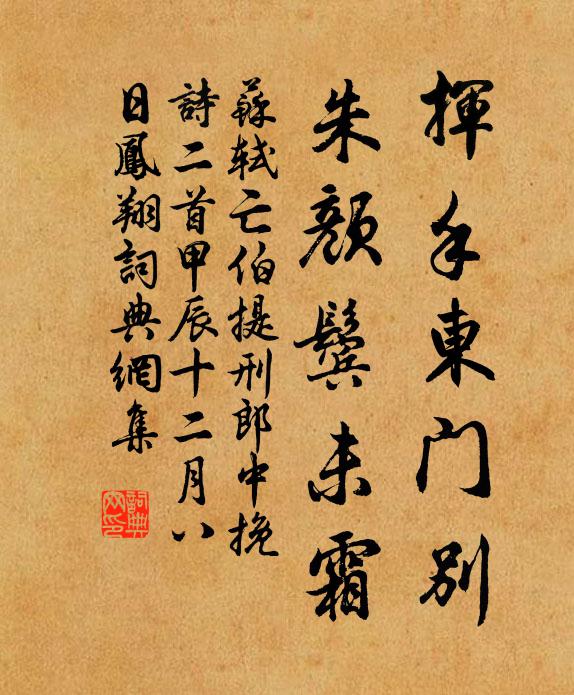 揮手東門別
朱顏鬢未霜
蘇軾亡伯提刑郎中挽
詩二首甲辰十二月八
日鳳翔詞典網集
詞典
网印